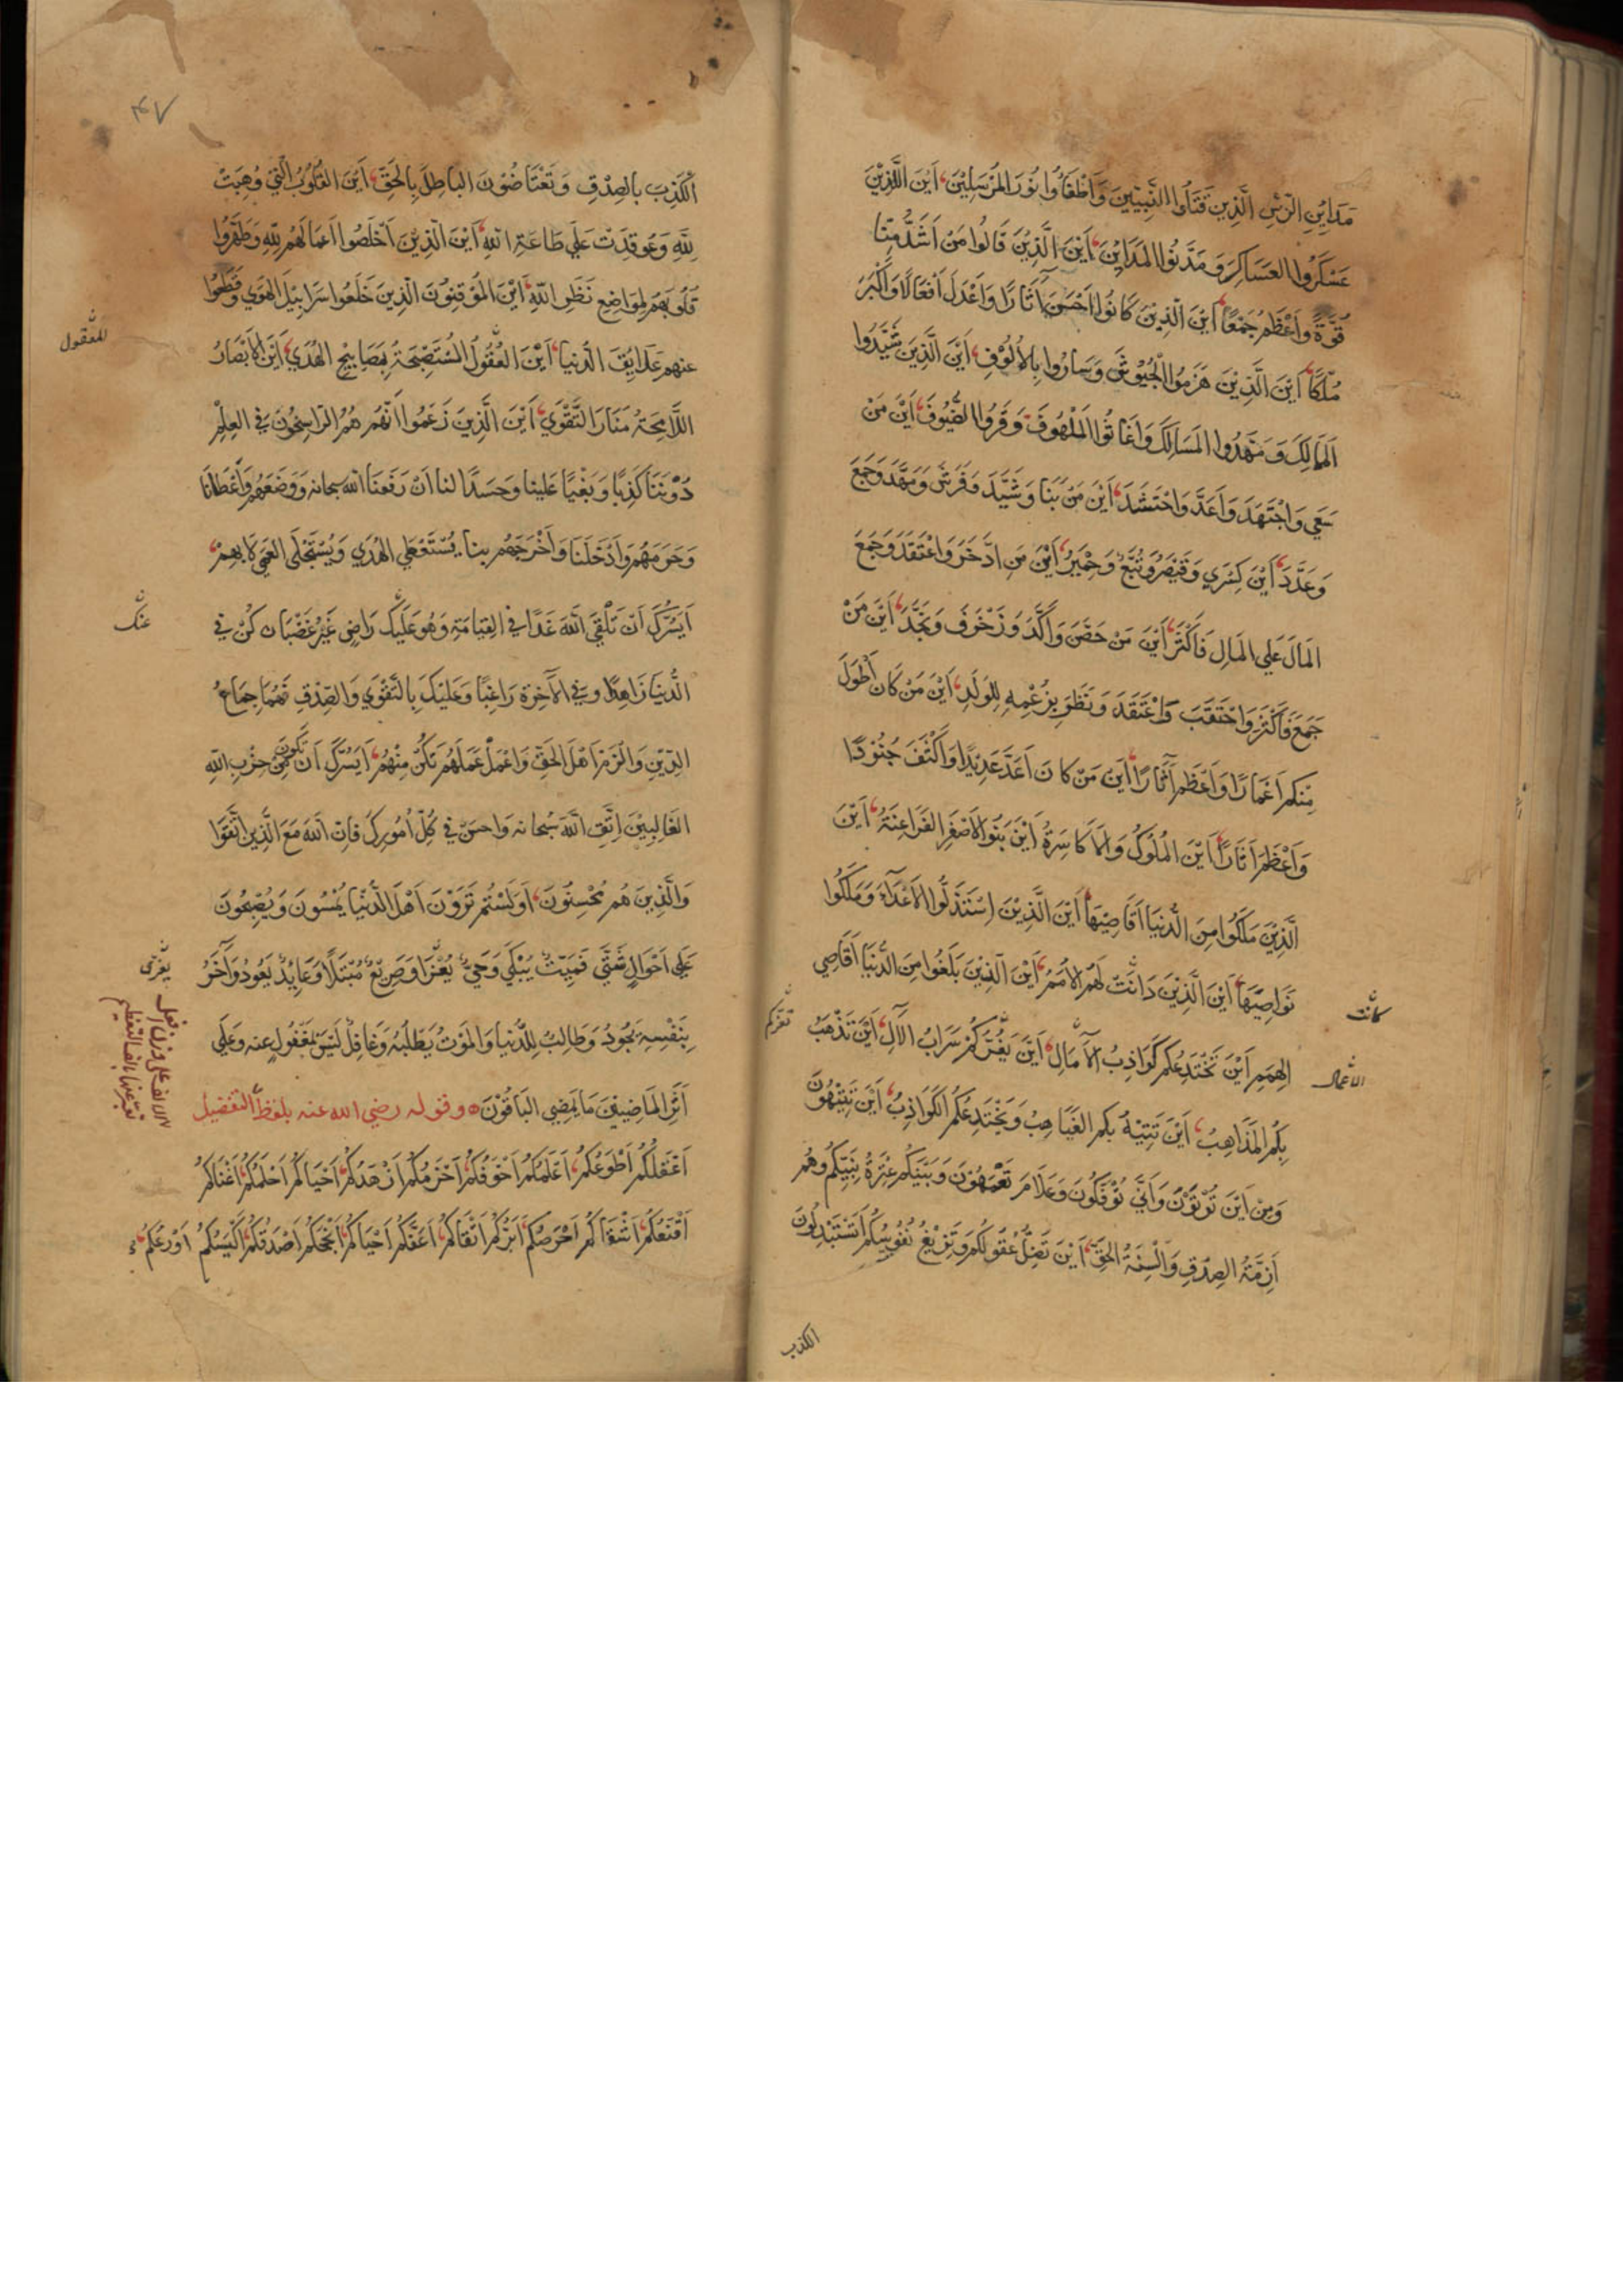 مَدَايِنِ الرَّسِّ الَّذِينَ قَتَلُوا النَّبِيِّينَ وَاَطْفَاُوا نُورَ المُرْسَلِيْنَ، اَيْنَ الَّذِيْنَ
عَسْكَرُوا العَسَاكِرَ وَمَدَّنُوا المَدَايِنَ، اَيْنَ الَّذِيْنَ قَالُوا مَنْ اَشَدُّ مِنَّا
قُوَّةً وَاَعْظَمُ جَمْعًا، اَيْنَ الَّذِيْنَ كَانُوا اَحْسَنَ اٰثَارًا وَاَعْدَلَ اَفْعَالًا وَاَكْبَرَ
مُلْكًا، اَيْنَ الَّذِيْنَ هَزَمُوا الْجُيُوْشَ وَسَارُوا بِالاُلُوْفِ، اَيْنَ الَّذِيْنَ شَيَّدُوا
المَمَالِكَ وَمَهَّدُوا المَسَالِكَ وَاَغَاثُوا المَلْهُوفَ وَقَرُوا الضُّيُوفَ، اَيْنَ مَنْ
سَعٰي وَاجْتَهَدَ وَاَعَدَّ وَاحْتَشَدَ، اَيْنَ مَنْ بَنَا وَشَيَّدَ وَفَرَشَ وَمَهَّدَ وَجَمَعَ
وَعَدَّدَ، اَيْنَ كِسْرٰي وَقَيْصَرُ وَتُبَّعُ وَحِمْيَرُ، اَيْنَ مَنِ ادَّخَرَ وَاعْتَقَدَ وَجَمَعَ
المَالَ عَلَي المَالِ فَاَكْثَرَ، اَيْنَ مَنْ حَصَّنَ وَاَكَّدَ وَزَخْرَفَ وَنَجَّدَ، اَيْنَ مَنْ
جَمَعَ فَاَكْثَرَ وَاحْتَقَبَ وَاعْتَقَدَ وَنَظَرَ بِزُعْمِهِ لِلوَلَدِ، اَيْنَ مَنْ كَانَ اَطْوَلَ
مِنكم اَعْمَارًا وَاَعْظَمَ اٰثَارًا، اَيْنَ مَنْ كَانَ اَعَدَّ عَدِيْدًا وَاَكْثَفَ جُنُوْدًا
وَاَعْظَمَ اٰثَارًا، اَيْنَ المُلُوْكُ وَالاَكَاسِرَةُ، اَيْنَ بَنُو الاَصْفَرِ الفَرَاعِنَةُ، اَيْنَ
الَّذِيْنَ مَلَكُوا مِنَ الدُّنْيَا اَقَاصِيْهَا، اَيْنَ الَّذِيْنَ اسْتَذَلُّوا الاَعْدَآءَ وَمَلَكُوا
نَوَاصِيَهَا، اَيْنَ الَّذِيْنَ دَانَتْ لَهُمُ الاُمَمُ، اَيْنَ الَّذِيْنَ بَلَغُوا مِنَ الدُّنْيَا اَقَاصِي
كانت
الهِمَمِ، اَيْنَ تَخْتَدِعُكُم كَوَاذِبُ الاٰمَالِ، اَيْنَ يَغُرُّكُمْ سَرَابُ الاٰلِ، اَيْنَ تَذْهَبُ
تغركم
بِكُمُ المَذَاهِبُ، اَيْنَ تَتِيْهُ بكم الغَيَاهِبُ وَيَخْتَدِعُكُمُ الكَوَاذِبُ، اَيْنَ تَتِيْهُونَ
وَمِنْ اَيْنَ تُؤْتَوْنَ وَاَنّٰي تُؤْفَكُونَ وَعَلَامَ تَعْمَهُوْنَ وَبَيْنَكُم عِتْرَةُ نَبِيِّكُم وَهُم
اَزِمَّةُ الصِّدْقِ وَاَلْسِنَةُ الحَقِّ، اَيْنَ تَضِلُّ عُقُولُكُم وَتَزِيْغُ نُفُوسُكُم اَتَسْتَبْدِلُونَ
الكذب
۴۷
الكَذِبَ بالصِدْقِ وَتَعْتَاضُوْنَ البَاطِلَ بِالحَقِّ، اَيْنَ القُلُوْبُ الَّتِي وُهِبَتْ
لِلّٰهِ وَعُوقِدَتْ عَلٰي طَاعَةِ اللّٰهِ، اَيْنَ الَّذِيْنَ اَخْلَصُوا اَعْمَالَهُم لِلّٰهِ وَطَهَّرُوا
قُلُوبَهُم لِمَوَاضِعِ نَظَرِ اللّٰهِ، اَيْنَ المُوْقِنُوْنَ الَّذِيْنَ خَلَعُوا سَرَابِيْلَ الهَوٰي وَقَطَعُوا
عنهم عَلَايِقَ الدُّنيا، اَيْنَ العُقُولُ المُسْتَصْبِحَةُ بِمَصَابِيْحِ الهُدٰي، اَيْنَ الاَبْصَارُ
اللَّامِحَةُ مَنَارَ التَّقْوٰي، اَيْنَ الَّذِيْنَ زَعَمُوا اَنَّهُم هُمُ الرَّاسِخُوْنَ في العِلْمِ
دُوْنَنَا كَذِبًا وَبَغْيًا عَلَينا وَحَسَدًا لنا اَنْ رَفَعَنَا اللّٰه سبحانه وَوَضَعَهُم وَاَعْطَانَا
وَحَرَمَهُم وَاَدْخَلَنَا وَاَخْرَجَهُم بِنا يُسْتَعْطَي الهُدٰي وَيُسْتَجْلَي العَمٰي لا بِهِمْ،
اَيَسُرُّكَ اَنْ تَلْقَي اللّٰهَ غَدًا في القِيَامَةِ وَهُوَ عَلَيْكَ رَاضٍ غَيْرُ غَضْبَان كُنْ في
عنك
الدُّنيا زَاهِدًا وَفي الاٰخِرَةِ رَاغِبًا وَعَلَيْكَ بِالتَّقْوٰي وَالصِّدْقِ فَهُمَا جِمَاعُ
الدِّيْنِ وَالْزَمْ اَهْلَ الحَقِّ وَاعْمَلْ عَمَلَهُم تَكُنْ مِنْهُمْ، اَيَسُرُّكَ اَنْ تَكُونَ مِنْ حِزْبِ اللّٰهِ
الغَالِبِيْنَ اِتَّقِ اللّٰهَ سُبحانه وَاحسِنْ في كُلِّ اُمُورِكَ فَاِنَّ اللّٰهَ مَعَ الَّذِيْنَ اتَّقَوْا
وَالَّذِيْنَ هُم مُحْسِنُوْنَ، اَوَلَسْتُم تَرَوْنَ اَهْلَ الدُّنْيَا يُمْسُونَ وَيُصْبِحُونَ
عَلٰي اَحْوَالٍ شَتّٰي فَمَيِّتٌ يُبْكٰي وَحَيٌّ يُعَزّٰا وَصَرِيْعٌ مُبْتَلًا وَعَايِدٌ يَعُودُ وَاٰخَرُ
يعزى
بِنَفْسِهِ يَجُودُ وَطَالِبٌ لِلدُّنيا وَالمَوْتُ يَطْلُبُهُ وَغَافِلٌ لَيْسَ بِمَغْفُولٍ عنه وَعَلٰي
اَثَرِ المَاضِيْنَ مَا يَمْضِي البَاقُوْنَ ۞ وقوله رضي الله عنه بلفظ التفضيل
اَعْقَلُكُم اَطْوَعُكُم، اَعْلَمُكُم اَخْوَفُكُم، اَحْزَمُكُم اَزْهَدُكُم، اَحْيَاكُم اَحْلَمُكُم، اَغْنَاكُم
اَقْنَعُكُم، اَشْقَاكُم اَحْرَصُكُم، اَبَرُّكُم اَتْقَاكُم، اَعَفُّكُم اَحْيَاكُم، اَنْجَحُكُم اَصْدَقُكُم، اَكْيَسُكُم اَوْرَعُكُم،